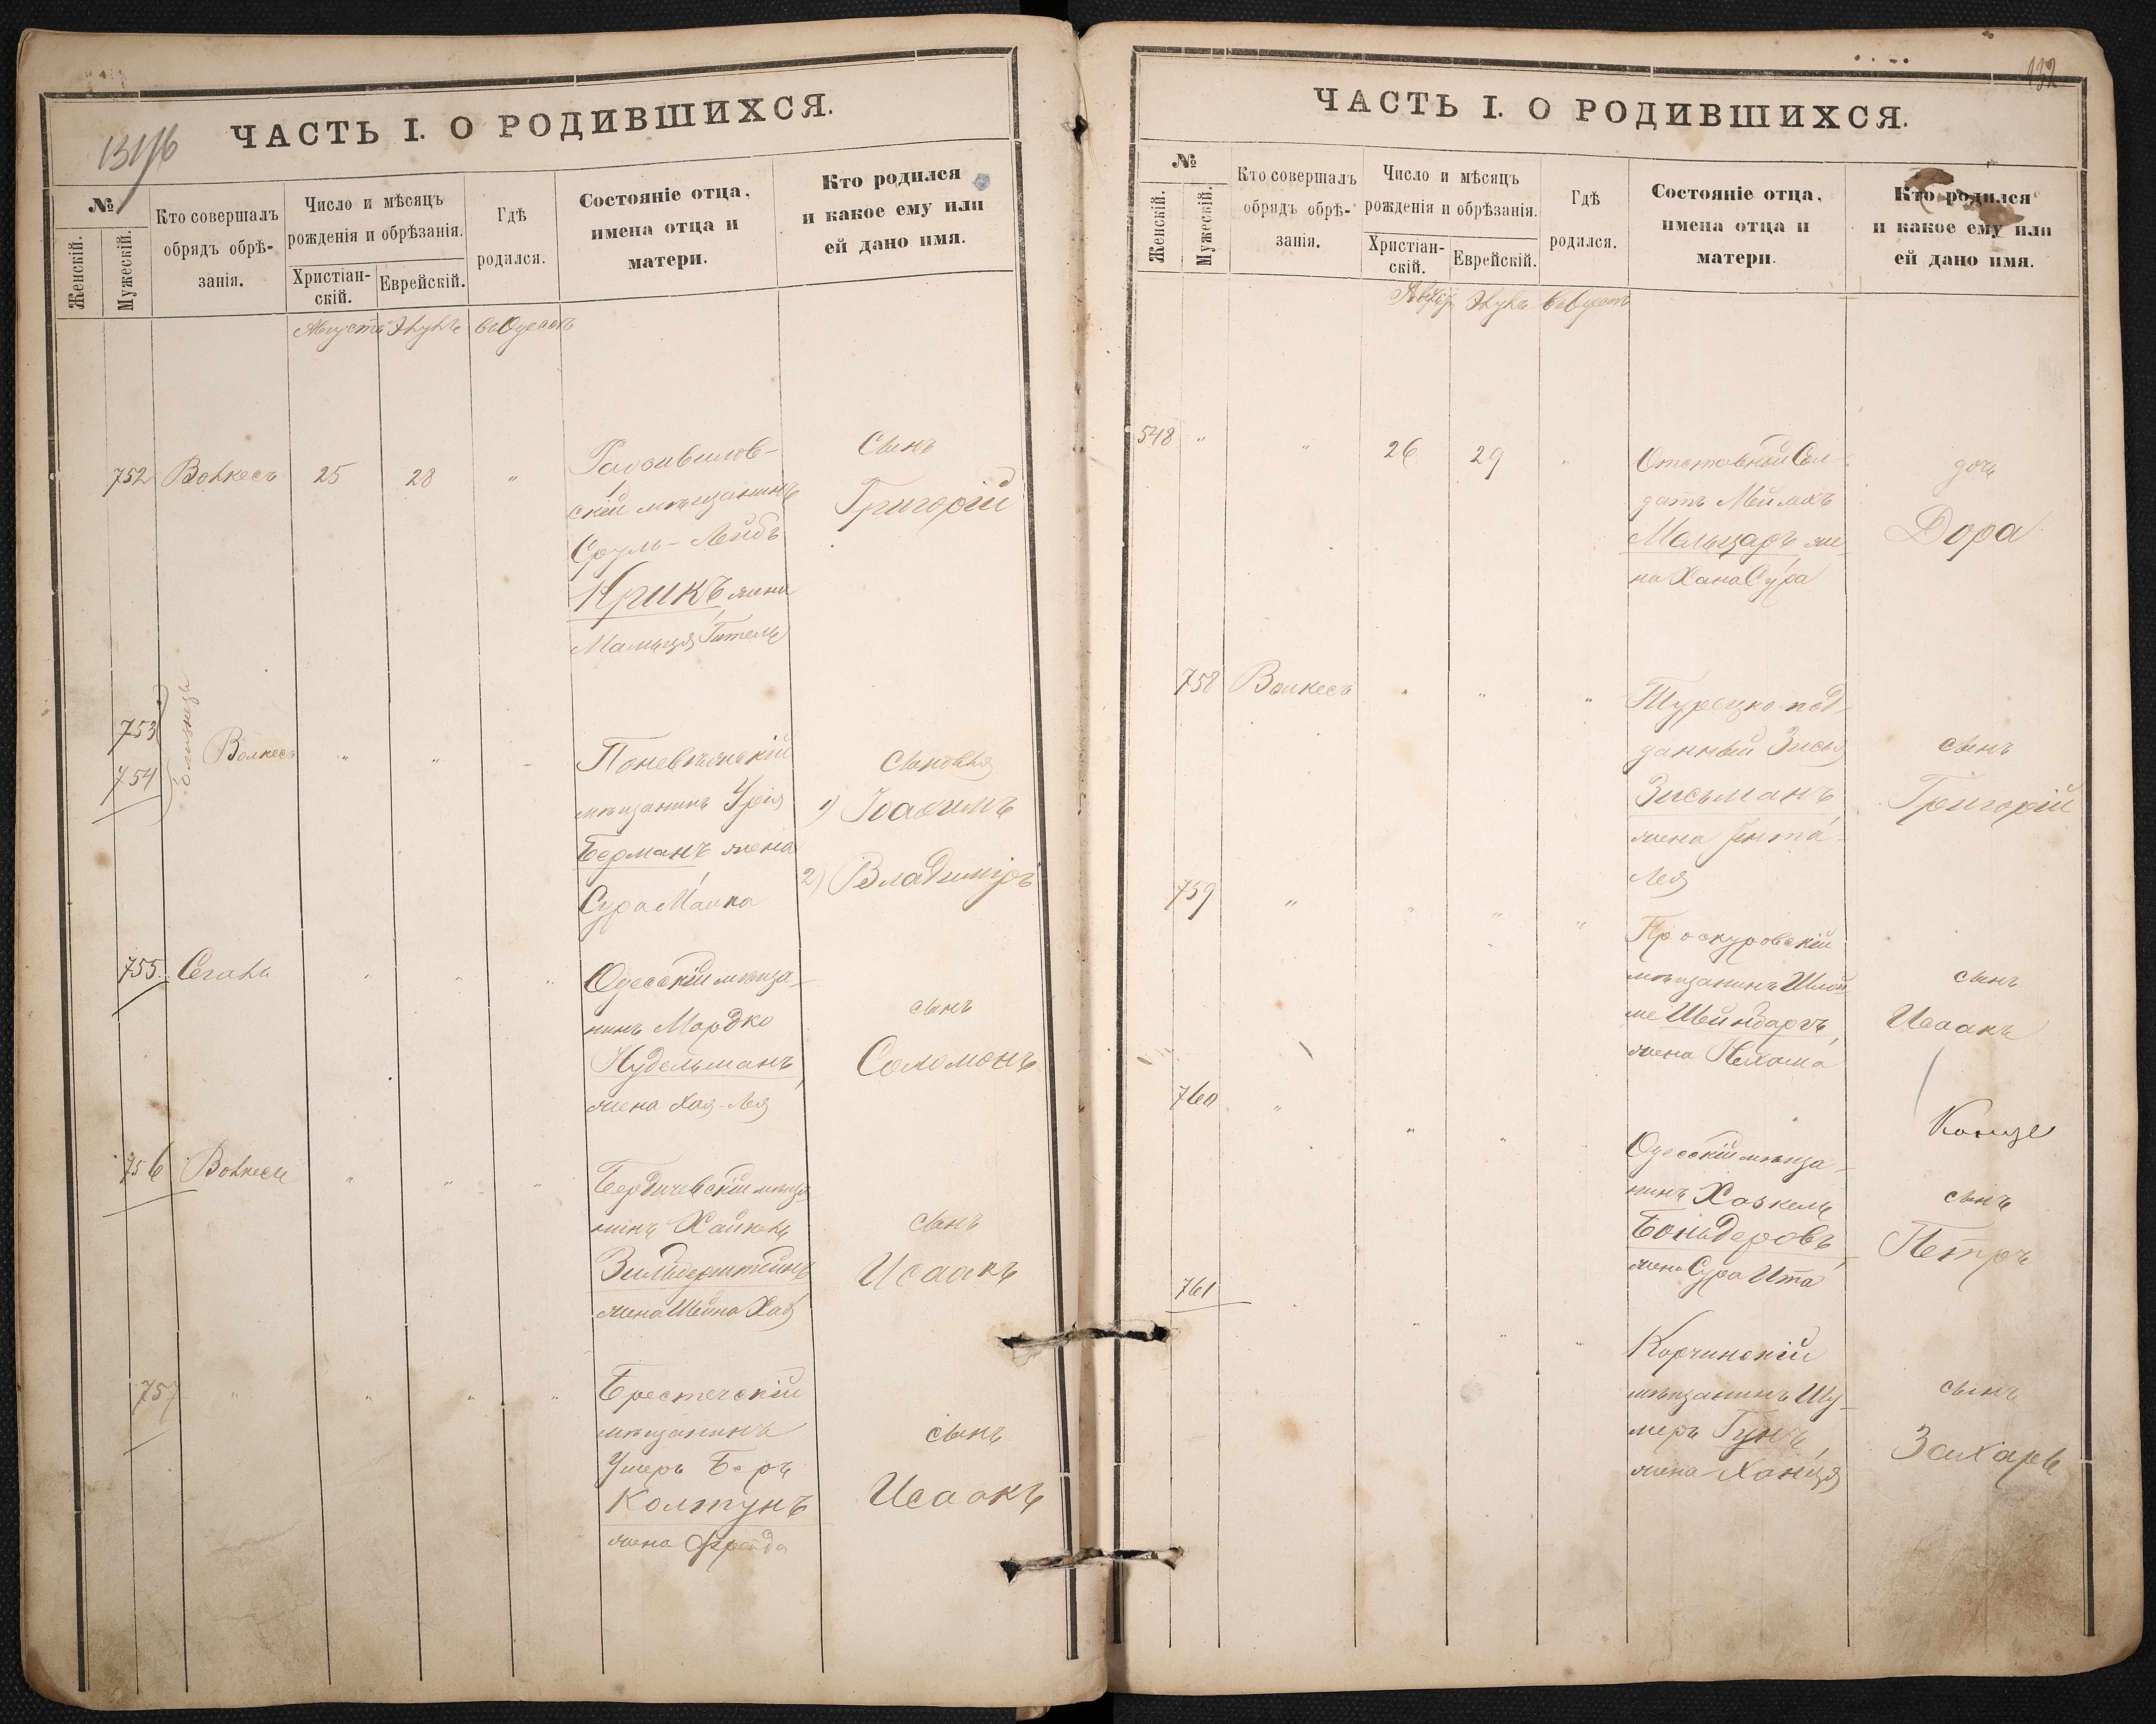 ЧАСТЬ I. О РОДИВШИХСЯ.
№
Женскій.
Мужескій.
Кто совершалъ
обрядъ обрѣ-
занія.
Число и мѣсяцъ
рожденія и обрѣзанія.
Христіан-
скій.
Еврейскій.
Гдѣ
родился.
Состояніе отца,
имена отца и
матери.
Кто родился
и какое ему или
ей дано имя.
Августъ
въ Одессѣ
752 25 28 "
скій мѣщанинъ
Сруль-Лейбъ
Крикъ жена
Мальця Гитель
Сынъ
Григорій
753
754
Близнецы
Волкесъ " "
мѣщанинъ
Берманъ жена
Сура Малка
Сыновья
1) Іоахимъ
2) Владиміръ
755. " " "
Одесскій мѣща-
нинъ Мордко
Нудельманъ,
жена Хая-Лея
сынъ
Соломонъ
756 " " "
Бердичевскій мѣща
нинъ
жена Шейна Хая
сынъ
Исаакъ
757 " " " "
Берестечскій
мѣщанинъ
Ушеръ Беръ
Колтунъ
жена Фрейда
сынъ
Исаакъ
132
ЧАСТЬ I. О РОДИВШИХСЯ.
№
Женскій.
Мужескій.
Кто совершалъ
обрядъ обрѣ-
занія.
Число и мѣсяцъ
рожденія и обрѣзанія.
Христіан-
скій.
Еврейскій.
Гдѣ
родился.
Состояніе отца,
имена отца и
матери.
Кто родился
и какое ему или
ей дано имя.
въ Одессѣ
548 " " 26 29 "
Отставной Сол-
датъ Мейлахъ
Мальцаръ же
на Хана Сура
дочь
Дора
758 Волкесъ " " "
Турецко-под-
данный Зися
Зисьманъ
жена Ента
Лея
сынъ
Григорій
759 " " " "
Проскуровскій
мѣщанинъ Шлой-
ме Швейндаръ,
жена Нехама
сынъ
Исаакъ
760 " " "
Одесскій мѣща-
нинъ Хаскель
жена Сура Ита
сынъ
Петръ
761 " " "
Корчинскій
мѣщанинъ Шу-
меръ Гунъ,
жена Ханця
сынъ
Захарь